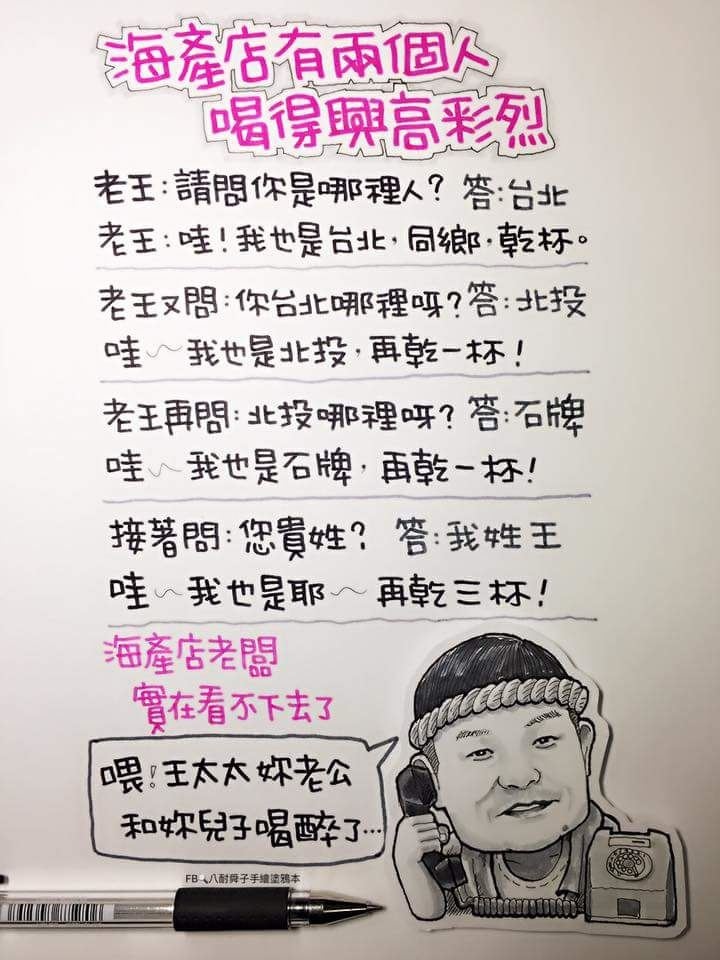 海產店有兩個人
喝得興高彩烈
老王:請問你是哪裡人? 答:台北
老王:哇!我也是台北,同鄉,乾杯。
老王又問:你台北哪裡呀?答:北投
哇~我也是北投,再乾一杯!
老王再問:北投哪裡呀? 答:石牌
哇~我也是石牌,再乾一杯!
接著問:您貴姓? 答:我姓王
哇~我也是耶~再乾三杯!
海產店老闆
實在看不下去了
喂!王太太妳老公
和妳兒子喝醉了...
FB 八耐舜子手繪塗鴉本